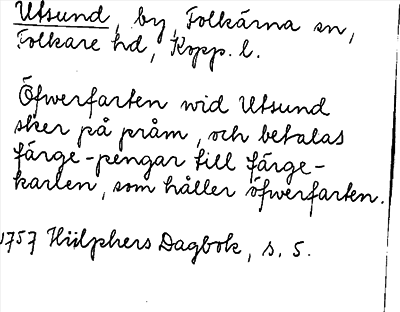 Utsund, by, Folkärna sn,
Folkare hd, Kopp. l.
Öfwerfarten wid Utsund
sker på pråm, och betalas
färge-pengar till färge-
karlen, som håller öfwerfarten.
1757 Hülphers Dagbok, s. 5.